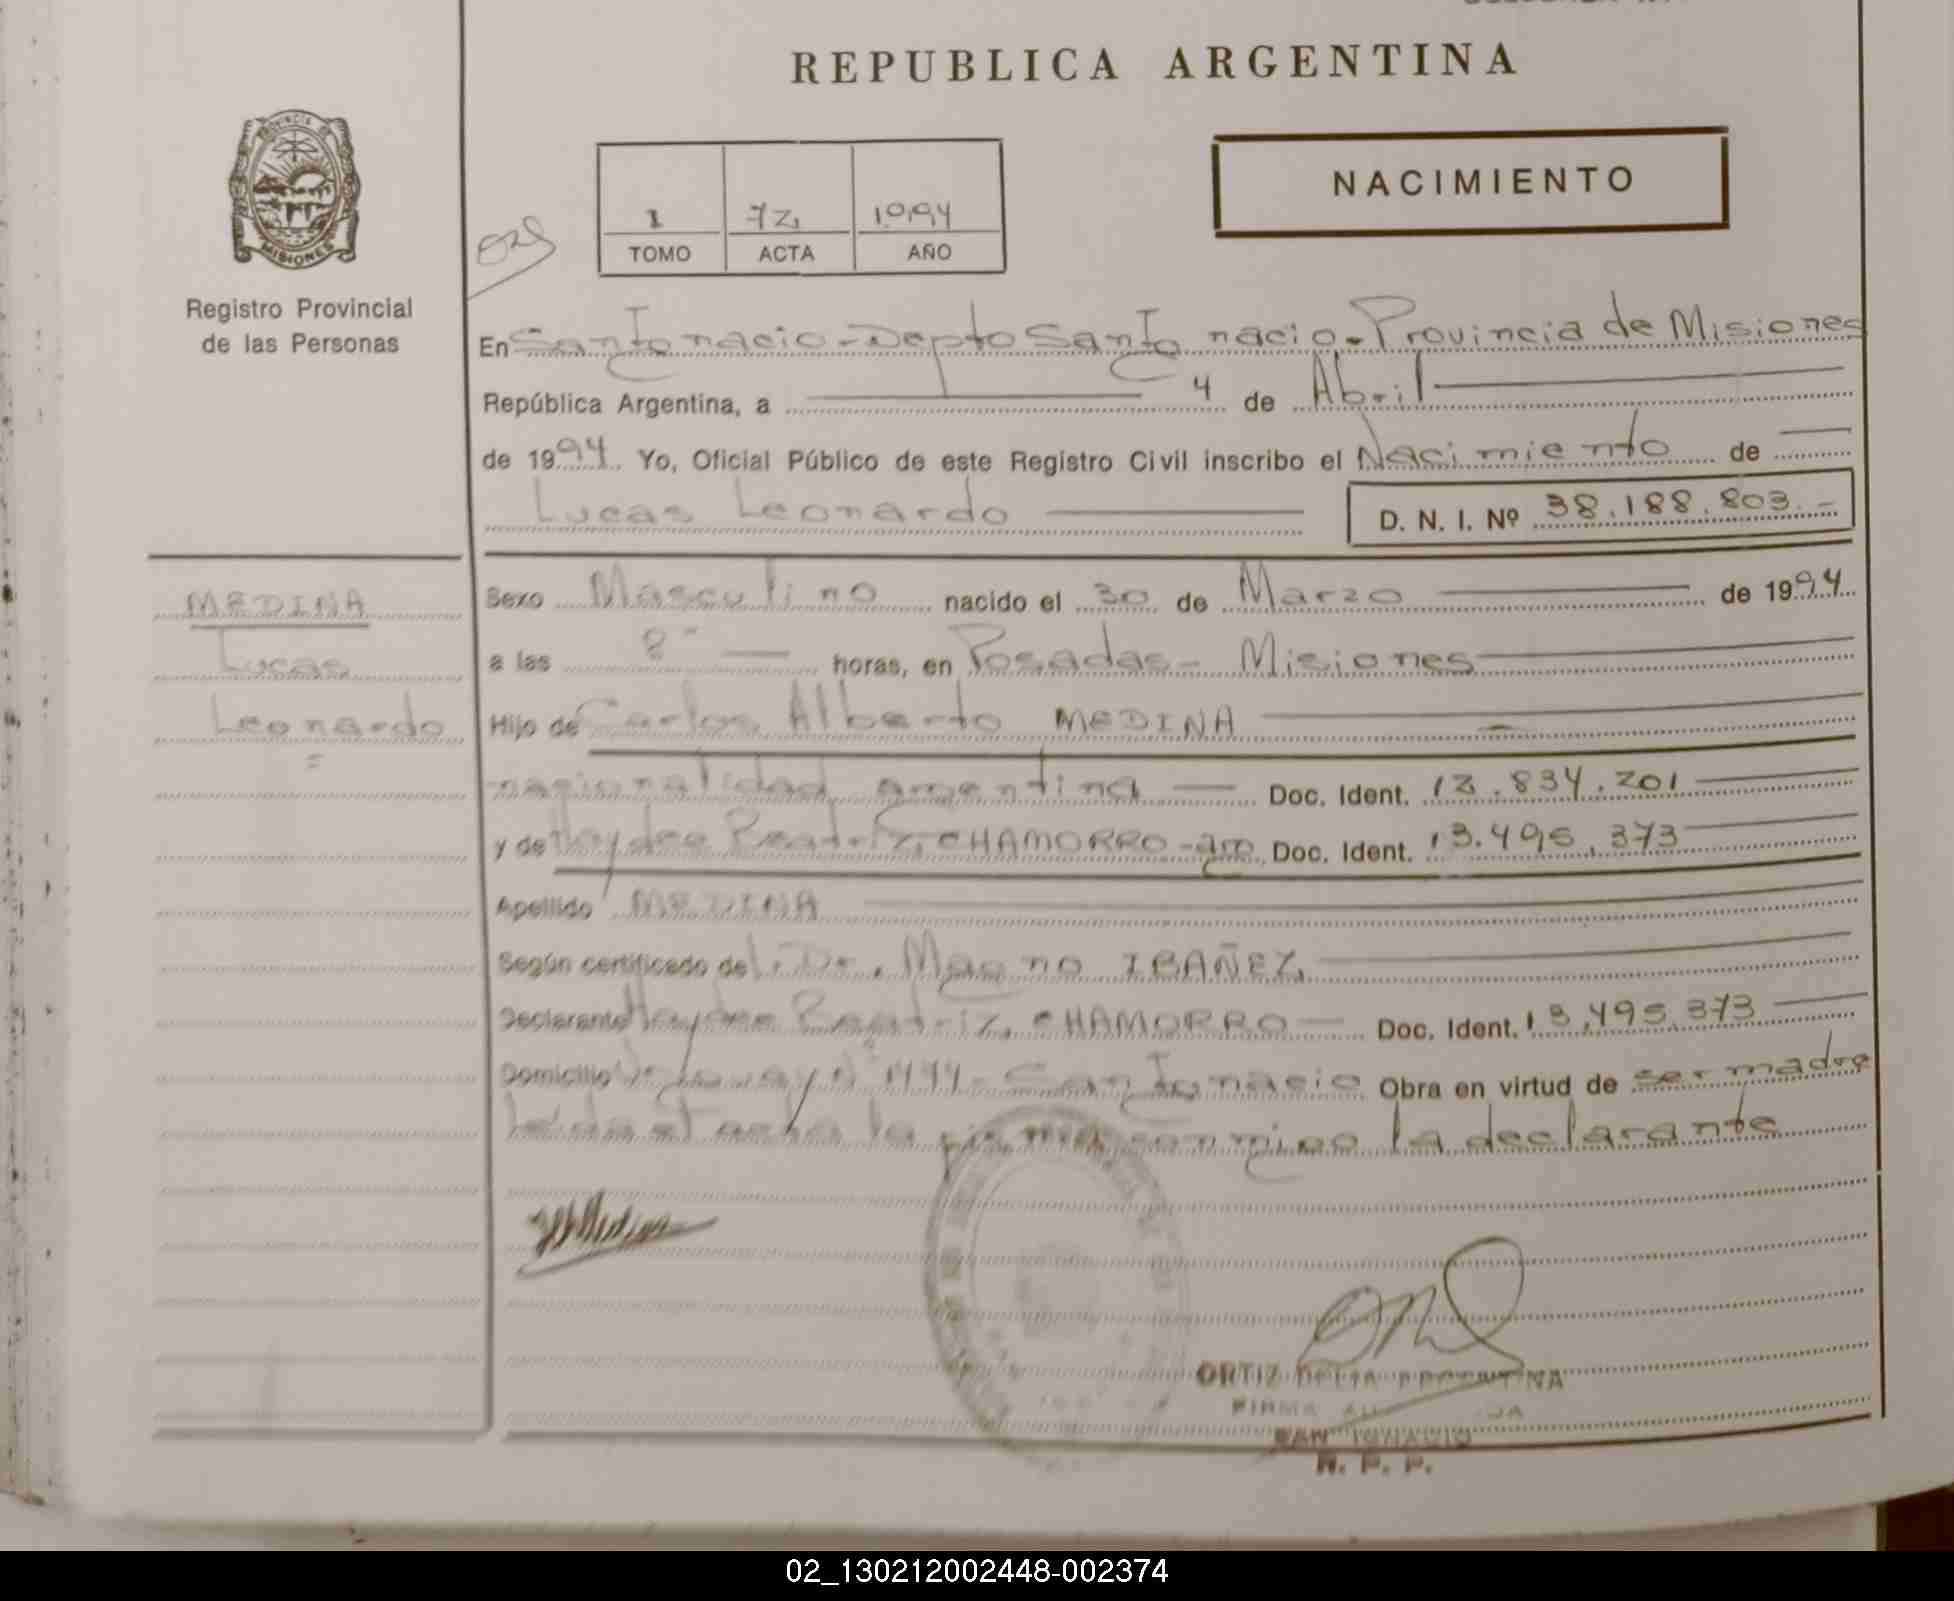 REPUBLICA ARGENTINA
PROVINCIA DE
MISIONES
Registro Provincial
de las Personas
029
1 72 1994
TOMO ACTA AÑO
NACIMIENTO
En San Ignacio - Depto San Ignacio - Provincia de Misiones
República Argentina, a 4 de Abril
de 1994. Yo, Oficial Público de este Registro Civil inscribo el Nacimiento de
Lucas Leonardo D. N. I. Nº 38.188.803.-
MEDINA
Lucas
Leonardo
Sexo Masculino nacido el 30 de Marzo de 1994
a las 8 horas, en Posadas - Misiones
Hijo de Carlos Alberto MEDINA
nacionalidad argentina Doc. Ident. 12.834.201
y de Haydee Beatriz CHAMORRO - arg. Doc. Ident. 13.495.373
Apellido MEDINA
Según certificado del Dr. Magno IBAÑEZ
Declarante Haydee Beatriz CHAMORRO Doc. Ident. 13.495.373
Domicilio Uruguay Nº 1444 - San Ignacio Obra en virtud de ser madre
leida el acta la firma conmigo la declarante
ORTIZ DELIA
FIRMA
SAN IGNACIO
R. P. P.
02_130212002448-002374